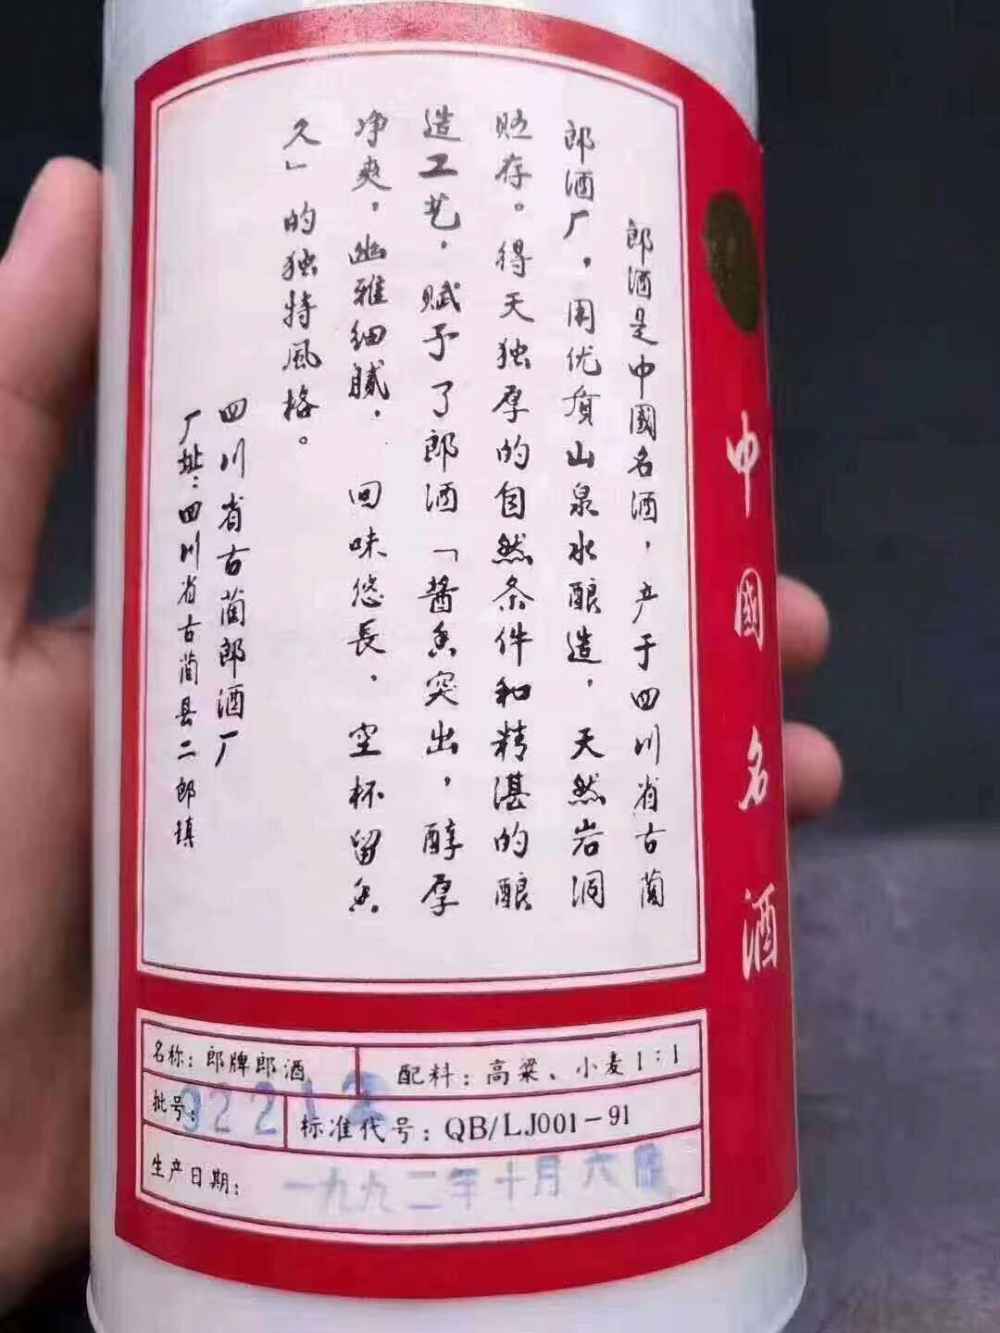 郎酒是中國名酒，产于四川省古蔺
郎酒厂，用优质山泉水酿造，天然岩洞
贮存。得天独厚的自然条件和精湛的酿
造工艺，赋予了郎酒「酱香突出，醇厚
净爽，幽雅细腻，回味悠長，空杯留香
久」的独特風格。
四川省古蔺郎酒厂
厂址：四川省古蔺县二郎镇
中國名酒
名称：郎牌郎酒
配料：高粱、小麦1:1
批号：
标准代号：QB/LJ001-91
生产日期：一九九二年十月六